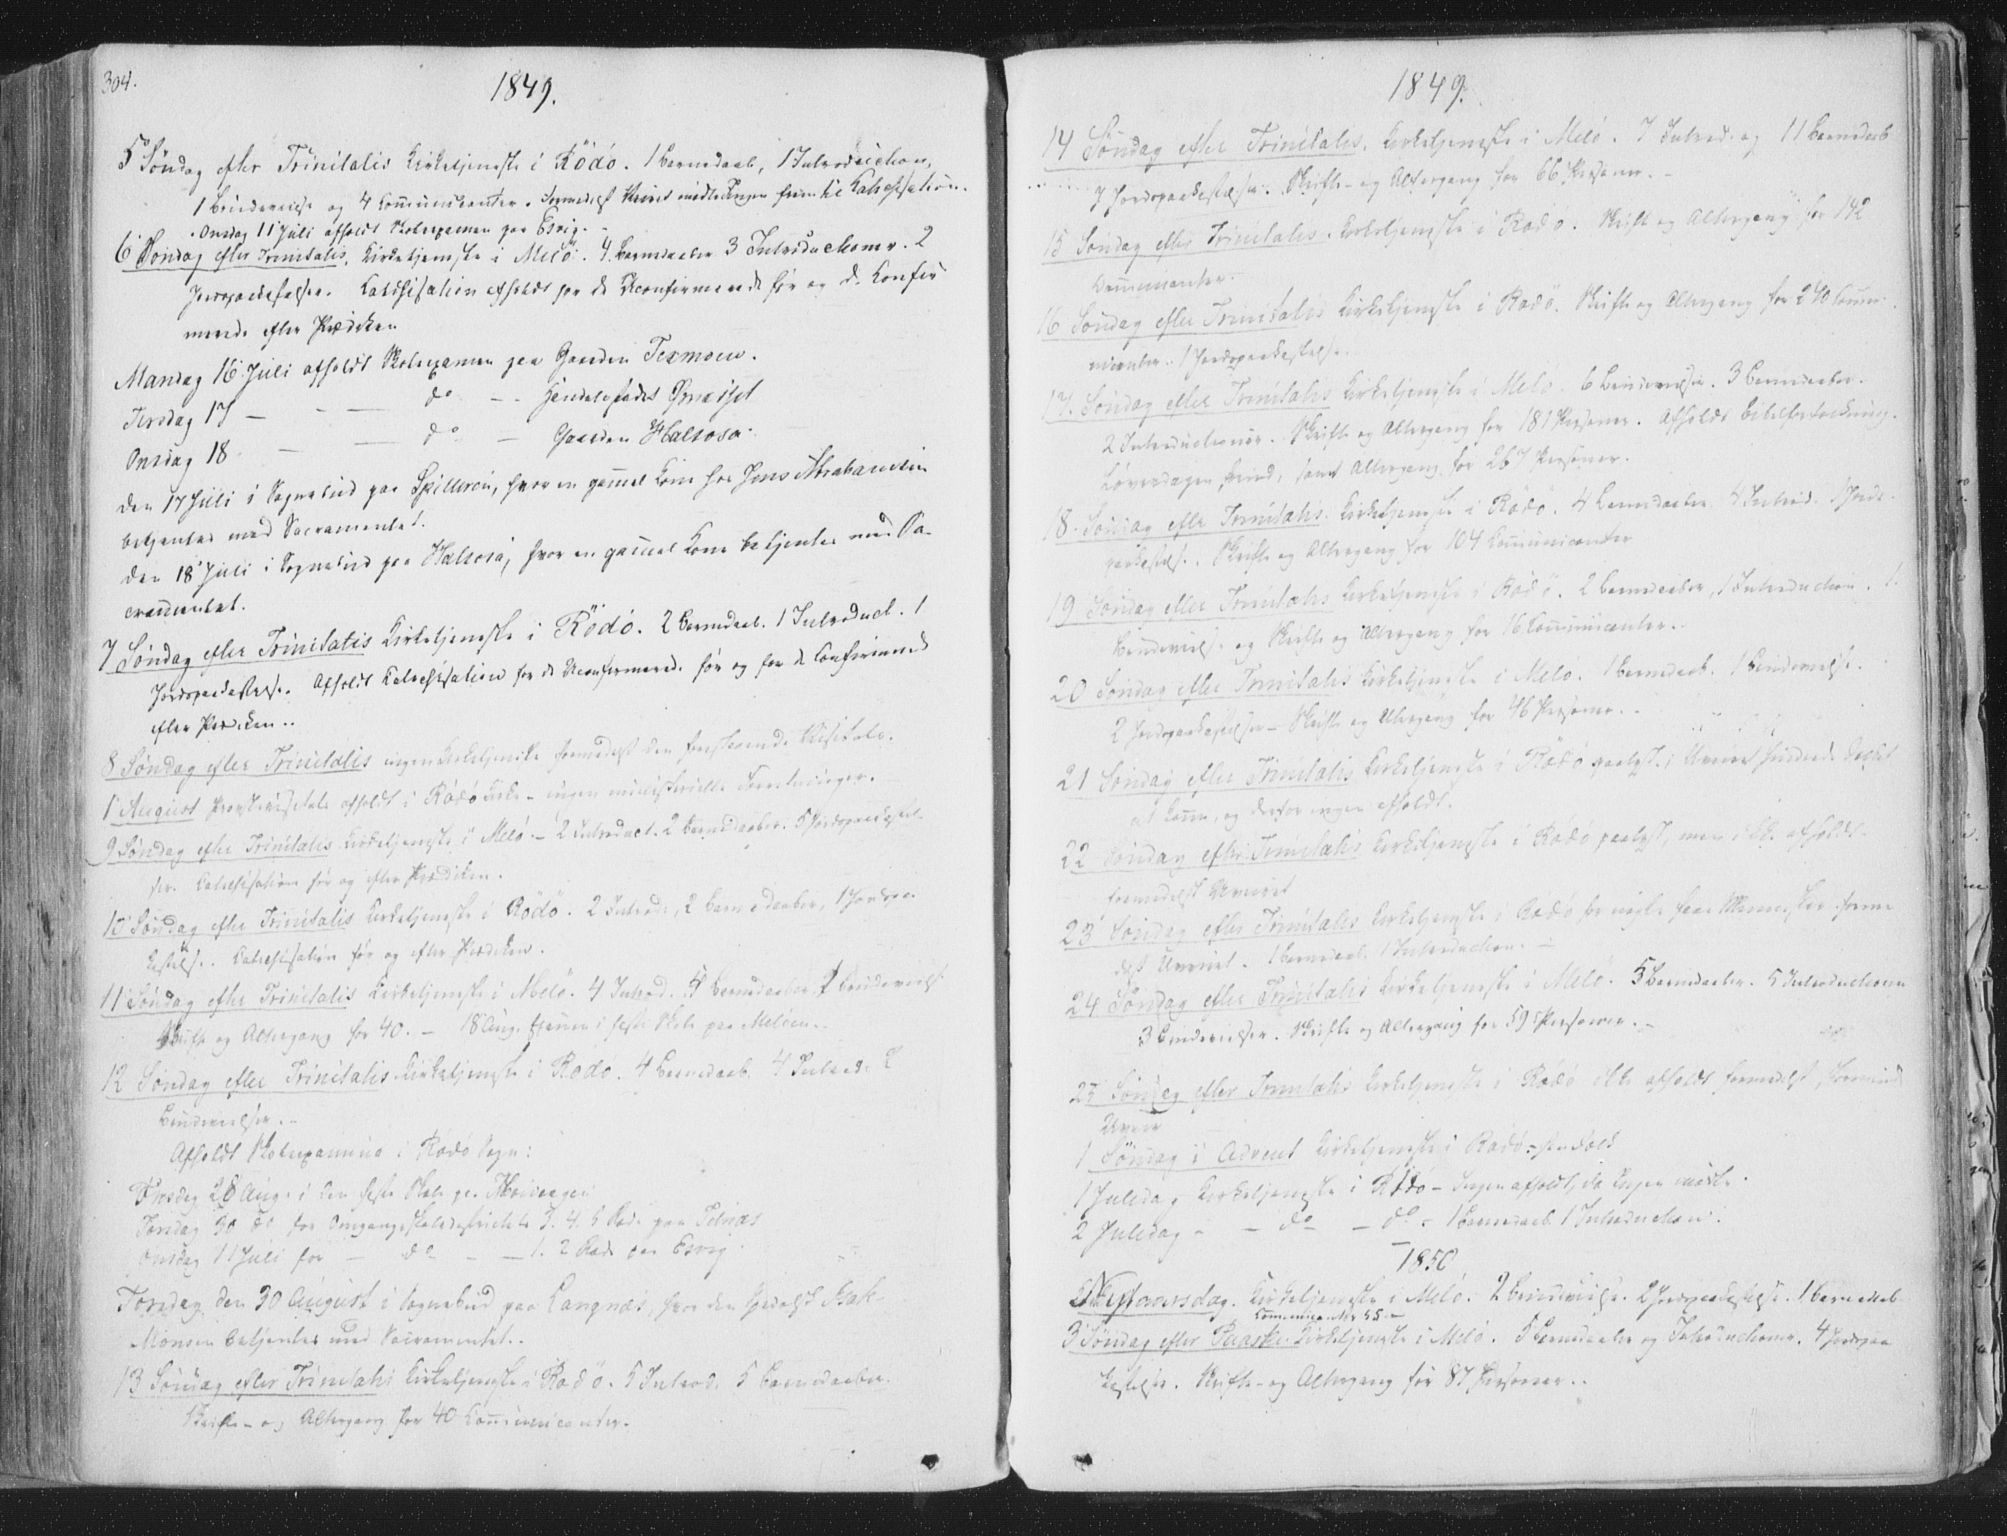 304.
1849.
5 Søndag efter Trinitatis Kirketjeneste i Rödö. 1 Barnedaab, 1 Introduction,
1 Brudevielse og 4 Communicanter. Formedelst Veiret ingen Catechisation.
Onsdag 11 Juli afholdt Skolexamen paa Esvig.
6 Søndag efter Trinitatis, Kirketjeneste i Melö. 4 Barnedaaber 3 Introductioner. 2
Jordpaakastelser. Catechisation afholdt for de Uconfirmerede før og de Confir
merede efter Prædiken
Mandag 16 Juli afholdt Skolexamen paa Gaarden Texmoen.
Tirsdag 17 — — — do — - Handelsstedet Ørnæset
Onsdag 18 — — do — Gaarden Halsosa.
Den 17 Juli i Sognebud paa Spilleren, hvor en gammel Kone hos Jens Abrahamsen
betjentes med Sacramentet.
Den 18 Juli i Sognebud paa Halsosa, hvor en gammel Kone betjentes med Sa-
cramentet.
7 Søndag efter Trinitatis Kirketjeneste i Rödö. 2 Barnedaab. 1 Introduct. 1
Jordpaakastelse. Afholdt Catechisation for de Uconfirmerede før og for de Confirmered
efter Prædiken..
8 Søndag efter Trinitatis ingen Kirketjeneste formedelst den forestaaende Visitats.
1 August Provstevisitats afholdt i Rödö Kirke - ingen ministerielle Forretninger.
9 Søndag efter Trinitatis Kirketjeneste i Melö - 2 Introduct. 2 Barnedaaber. 5 Jordpaakastel-
ser. Catechisation før og efter Prædiken.
10 Søndag efter Trinitatis Kirketjeneste i Rödö. 2 Introd., 2 Barnedaaber, 1 Jordpaa
kastelse. Catechisation før og efter Prædiken.
11 Søndag efter Trinitatis Kirketjeneste i Melö. 4 Introd. 5 Barnedaaber 1 Brudevielse
Skrifte og Altergang for 40. — 18 Aug. Examen i faste Skole paa Meløen..
12 Søndag efter Trinitatis Kirketjeneste i Rödö. 4 Barnedaab. 4 Introd. 2
Brudevielser..
Afholdt Skolexamina i Rödö Sogn:
28 Aug. i den faste Skole paa
Torsdag 30 do for Omgangsskoledistrictets 3. 4. 5 Rode paa Selnæs
Onsdag 11 Juli for — do — — 1. 2 Rode paa Esvig
Torsdag den 30 August i Sognebud paa Langnæs, hvor den Isak-
Monsen betjentes med Sacramentet..
13 Søndag efter Trinitatis Kirketjeneste i Rödö. 5 Introd. 5 Barnedaaber.
Skrifte- og Altergang for 40 Communicanter.
1849.
14 Søndag efter Trinitatis. Kirketjeneste i Melö. 7 Introd. og 11 Barnedaab
7 Jordpaakastelser. Skrifte- og Altergang for 66 Personer. -
15 Søndag efter Trinitatis. Kirketjeneste i Rödö. Skrifte og Altergang for 142
Communicanter.
16 Søndag efter Trinitatis Kirketjeneste i Rödö. Skrifte og Altergang for 240 Commu-
nicanter. 1 Jordpaakastelse.
17. Søndag efter Trinitatis Kirketjeneste i Melö. 6 Brudevielser. 3 Barnedaaber.
2 Introductioner. Skrifte og Altergang for 181 Personer. Afholdt Bibelforklaring.
Løverdagen samt Altergang for 267 Personer.
18. Søndag efter Trinitatis. Kirketjeneste i Rödö. 4 Barnedaaber 4 Introd. 1 Jord-
paakastelse. Skrifte og Altergang for 104 Communicanter
19 Søndag efter Trinitatis Kirketjeneste i Rödö. 2 Barnedaaber, 1 Introduction. 1
Brudevielse og Skrifte og Altergang for 16 Communicanter..
20 Søndag efter Trinitatis Kirketjeneste i Melö. 1 Barnedaab. 1 Brudevielse.
2 Jordpaakastelser - Skrifte og Altergang for 46 Personer..
21 Søndag efter Trinitatis Kirketjeneste i Rödö paalyst; Uveiret hindrede Folket
at komme, og derfor ingen afholdt.
22 Søndag efter Trinitatis Kirketjeneste i Rödö paalyst, men ikke afholdt
formedelst Uveiret
23 Søndag efter Trinitatis Kirketjeneste i Rödö for nogle faae Mennesker forme
delst Uveiret. 1 Barnedaab. 1 Introduction. -
24 Søndag efter Trinitatis Kirketjeneste i Melö. 5 Barnedaaber. 5 Introductioner
3 Brudevielser. Skrifte og Altergang for 59 Personer. -
25 Søndag efter Trinitatis Kirketjeneste i Rödö ikke afholdt formedelst
Uveir
1 Søndag i Advent Kirketjeneste i Rödö
1 Juledag Kirketjeneste i Rödö - Ingen afholdt, da Ingen mødte.
2 Juledag - — do — do - 1 Barnedaab. 1 Introduction.
1850
Nytaarsdag. Kirketjeneste i Melö. 2 Brudevielser. 2 Jordpaakastelse. 1 Barnedaab
Communicanter 55 -
3 Søndag efter Paaske Kirketjeneste i Melö. 5 Barnedaaber og Introductioner. 4 Jordpaa
kastelser. Skrifte- og Altergang for 87 Personer..